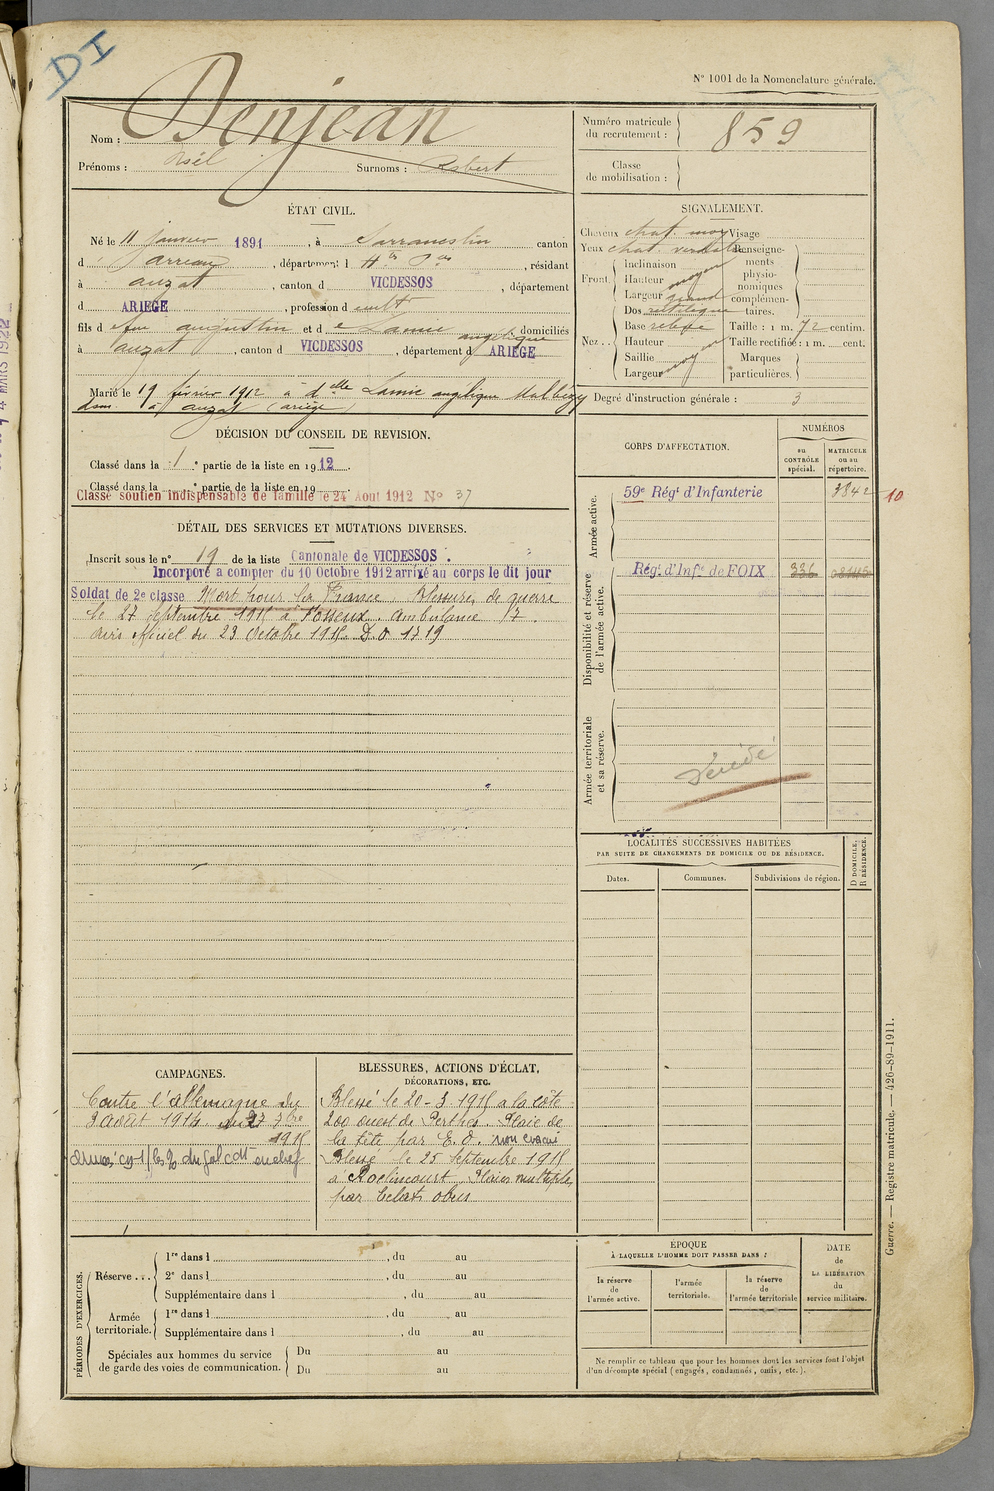 DI
N° 1001 de la Nomenclature générale.
Nom : Denjean
Prénoms : Noël Surnoms : Robert
Numéro matricule du recrutement : 859
Classe de mobilisation :
ÉTAT CIVIL.
Né le 11 janvier 1891, à canton
d Arreau, département d Htes Pees, résidant
à auzat, canton d VICDESSOS, département
d ARIEGE, profession d cult
fils d e feu augustin et d e Lannie angélique domiciliés
à auzat, canton d VICDESSOS, département d ARIEGE
Marié le 19 février 1912 à dlle angélique
dom à auzat (ariège)
SIGNALEMENT.
Cheveux chat. moy Visage
Yeux chat. verdâtre Renseigne-
Front Inclinaison moyen ments
Hauteur physio-
nomiques
Largeur grand complémen-
Dos rectiligne taires.
Nez Base relevé Taille : 1 m. 72 centim.
Hauteur Taille rectifiée : 1 m. cent.
Saillie moy Marques
Largeur particulières.
Degré d'instruction générale : 3
DÉCISION DU CONSEIL DE REVISION.
Classé dans la 1e partie de la liste en 1912.
Classé dans la e partie de la liste en 19
Classé soutien indispensable de famille le 24 Aout 1912 No 37
DÉTAIL DES SERVICES ET MUTATIONS DIVERSES.
Inscrit sous le n° 19 de la liste Cantonale de VICDESSOS.
Incorporé a compter du 10 Octobre 1912 arrivé au corps le dit jour
Soldat de 2e classe Mort pour la France. Blessures de guerre
le 27 Septembre 1915 à Fosseux. Ambulance 17.
avis officiel du 23 Octobre 1915. D.O 1719
CORPS D'AFFECTATION.
NUMÉROS
au CONTRÔLE spécial.
MATRICULE ou au répertoire.
Armée active.
59e Régt d'Infanterie 3842 10
Disponibilité et réserve de l'armée active.
Régt d'Infie de FOIX 336
Armée territoriale et sa réserve.
Décédé
LOCALITÉS SUCCESSIVES HABITÉES
PAR SUITE DE CHANGEMENTS DE DOMICILE OU DE RÉSIDENCE.
Dates. Communes. Subdivisions de région. D DOMICILE. R RÉSIDENCE.
CAMPAGNES.
Contre l'allemagne du
3 août 1914 au 27 7bre
1915
BLESSURES, ACTIONS D'ÉCLAT,
DÉCORATIONS, ETC.
Blessé le 20-3-1915 a la côte
200 ouest de Perthes. Plaie de
la tête par E.O. non évacué
Blessé le 25 Septembre 1915
à Roclincourt. Plaies multiples
par Eclats obus
PÉRIODES D'EXERCICES.
Réserve ... 1re dans l , du au
2e dans l , du au
Supplémentaire dans l , du au
Armée territoriale. 1re dans l , du au
Supplémentaire dans l , du au
Spéciales aux hommes du service de garde des voies de communication. Du au
Du au
ÉPOQUE
À LAQUELLE L'HOMME DOIT PASSER DANS :
la réserve de l'armée active.
l'armée territoriale.
la réserve de l'armée territoriale
DATE de LA LIBÉRATION du service militaire.
Ne remplir ce tableau que pour les hommes dont les services font l'objet
d'un décompte spécial (engagés, condamnés, omis, etc.).
Guerre. — Registre matricule. — 426-89-1911.
4 MARS 1922